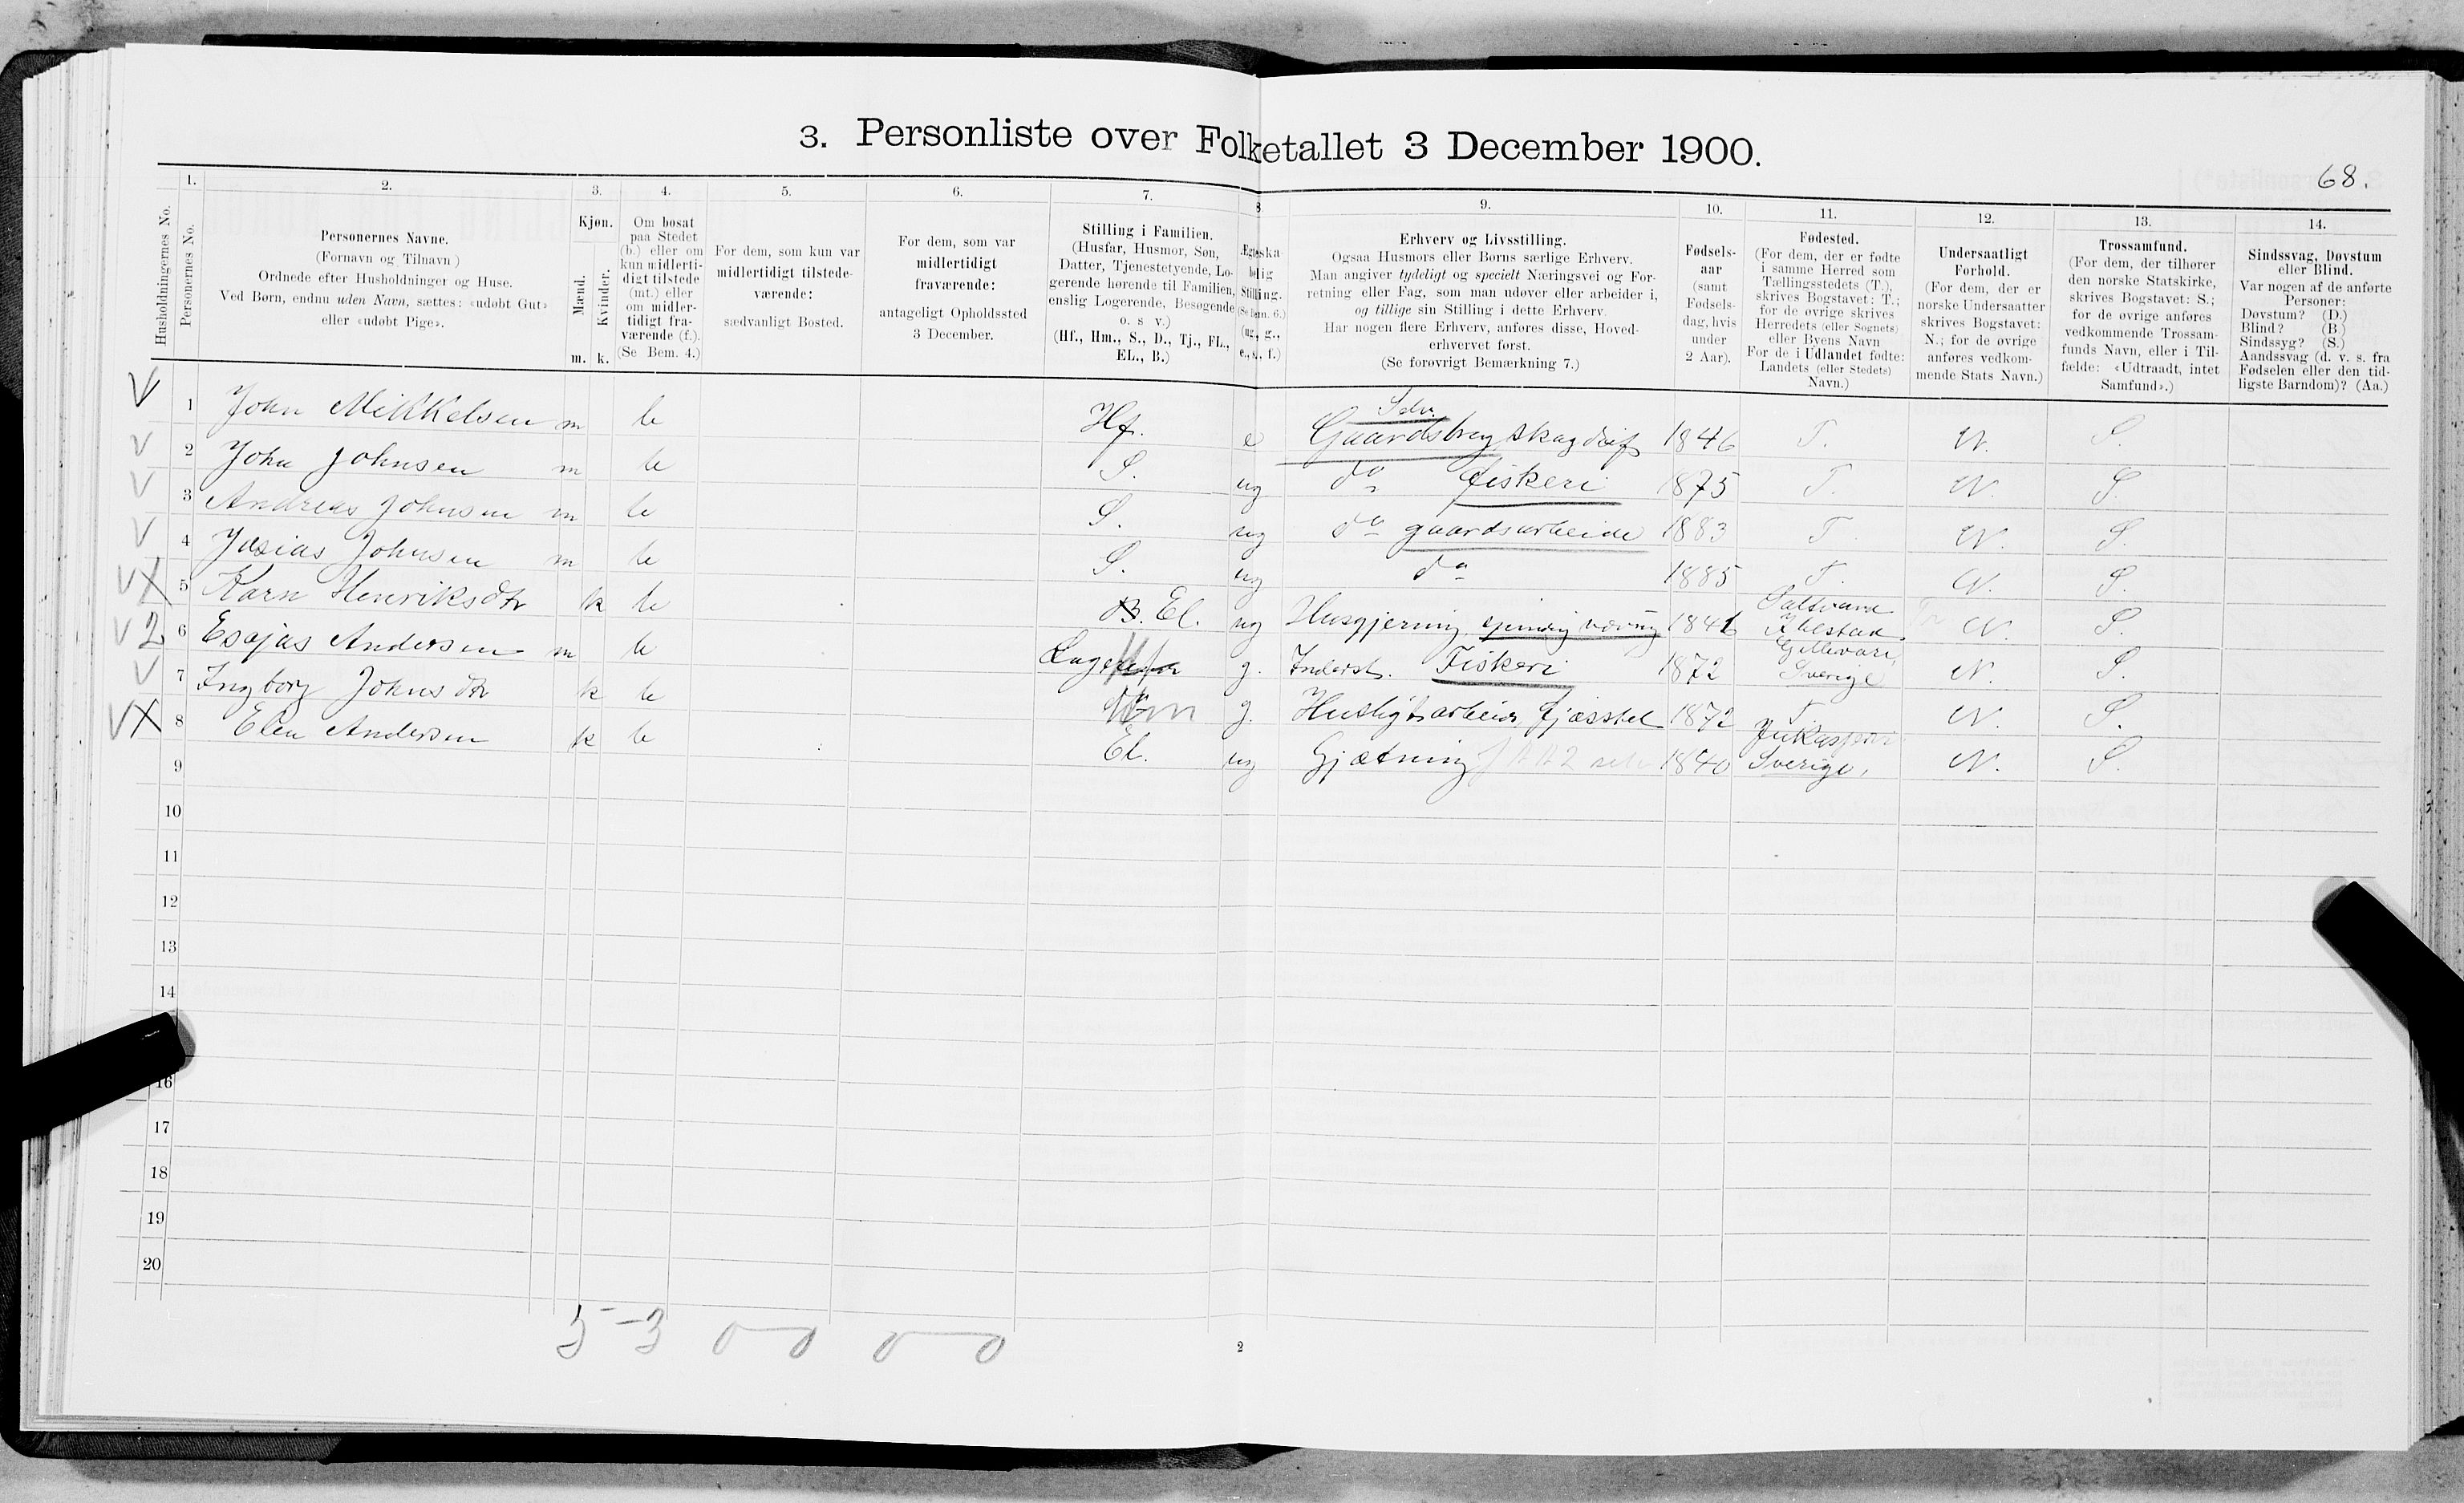 3. Personliste over Folketallet 3 December 1900.
68.
Husholdningernes No.
1.
Personernes No.
2.
Personernes Navne.
(Fornavn og Tilnavn)
Ordnede efter Husholdninger og Huse.
Ved Børn, endnu uden Navn, sættes: «udøbt Gut»
eller «udøbt Pige».
3.
Kjøn.
Mænd.
Kvinder.
m. k.
4.
Om bosat
paa Stedet
(b.) eller om
kun midlerti-
digt tilstede
(mt.) eller
om midler-
tidigt fra-
værende (f.).
(Se Bem. 4.)
5.
For dem, som kun var
midlertidigt tilstede-
værende:
sædvanligt Bosted.
6.
For dem, som var
midlertidigt
fraværende:
antageligt Opholdssted
3 December.
7.
Stilling i Familien.
(Husfar, Husmor, Søn,
Datter, Tjenestetyende, Lo-
gerende hørende til Familien,
enslig Logerende, Besøgende
o. s v.)
(Hf., Hm., S., D., Tj., FL.,
EL., B.)
8
Ægteska-
belig
Stilling.
(Se Bem. 6.)
(ug., g.,
e., s., f.)
9.
Erhverv og Livsstilling.
Ogsaa Husmors eller Børns særlige Erhverv.
Man angiver tydeligt og specielt Næringsvei og For-
retning eller Fag, som man udøver eller arbeider i,
og tillige sin Stilling i dette Erhverv.
Har nogen flere Erhverv, anføres disse, Hoved-
erhvervet først.
(Se forøvrigt Bemærkning 7.)
10.
Fødsels-
aar
(samt
Fødsels-
dag, hvis
under
2 Aar).
11.
Fødested.
(For dem, der er fødte
i samme Herred som
Tællingsstedets (T.),
skrives Bogstavet: T.;
for de øvrige skrives
Herredets (eller Sognets)
eller Byens Navn
For de i Udlandet fødte:
Landets (eller Stedets)
Navn.)
12.
Undersaatligt
Forhold.
(For dem, der er
norske Undersaatter
skrives Bogstavet:
N.; for de øvrige
anføres vedkom-
mende Stats Navn.)
13.
Trossamfund.
(For dem, der tilhører
den norske Statskirke,
skrives Bogstavet: S.;
for de øvrige anføres
vedkommende Trossam-
funds Navn, eller i Til-
fælde: «Udtraadt, intet
Samfund».)
14.
Sindssvag, Døvstum
eller Blind.
Var nogen af de anførte
Personer:
Døvstum? (D.)
Blind? (B.)
Sindssyg? (S.)
Aandssvag (d. v. s. fra
Fødselen eller den tid-
ligste Barndom)? (Aa.)
V 1 John Mikkelsen m b Hf. e Selv. Gaardsbrug 1846 T. N. S.
V 2 John Johnsen m b S. ug do fiskeri 1875 T. N. S.
V 3 Andreas Johnsen m b S. ug do gaardsarbeide 1883 T. N. S.
V 4 Josias Johnsen m b S. ug do 1885 T. N. S.
V X 5 Karn Henriksdtr k b B. El. ug Husgjerning 1846 N. S.
V 2 6 Esajas Andersen m b g. Inderst. Fiskeri 1872 Gellivare, Sverige N. S.
V 7 Ingborg Johnsdtr k b Hm g. 1872 T. N. S.
V X 8 Elen Andersen k b El. ug Gjætning 1840 Jukasjervi Sverige, N. S.
9
10
11
12
13
14
16
17
18
19
20
5 - 3 0 0 0 0
2